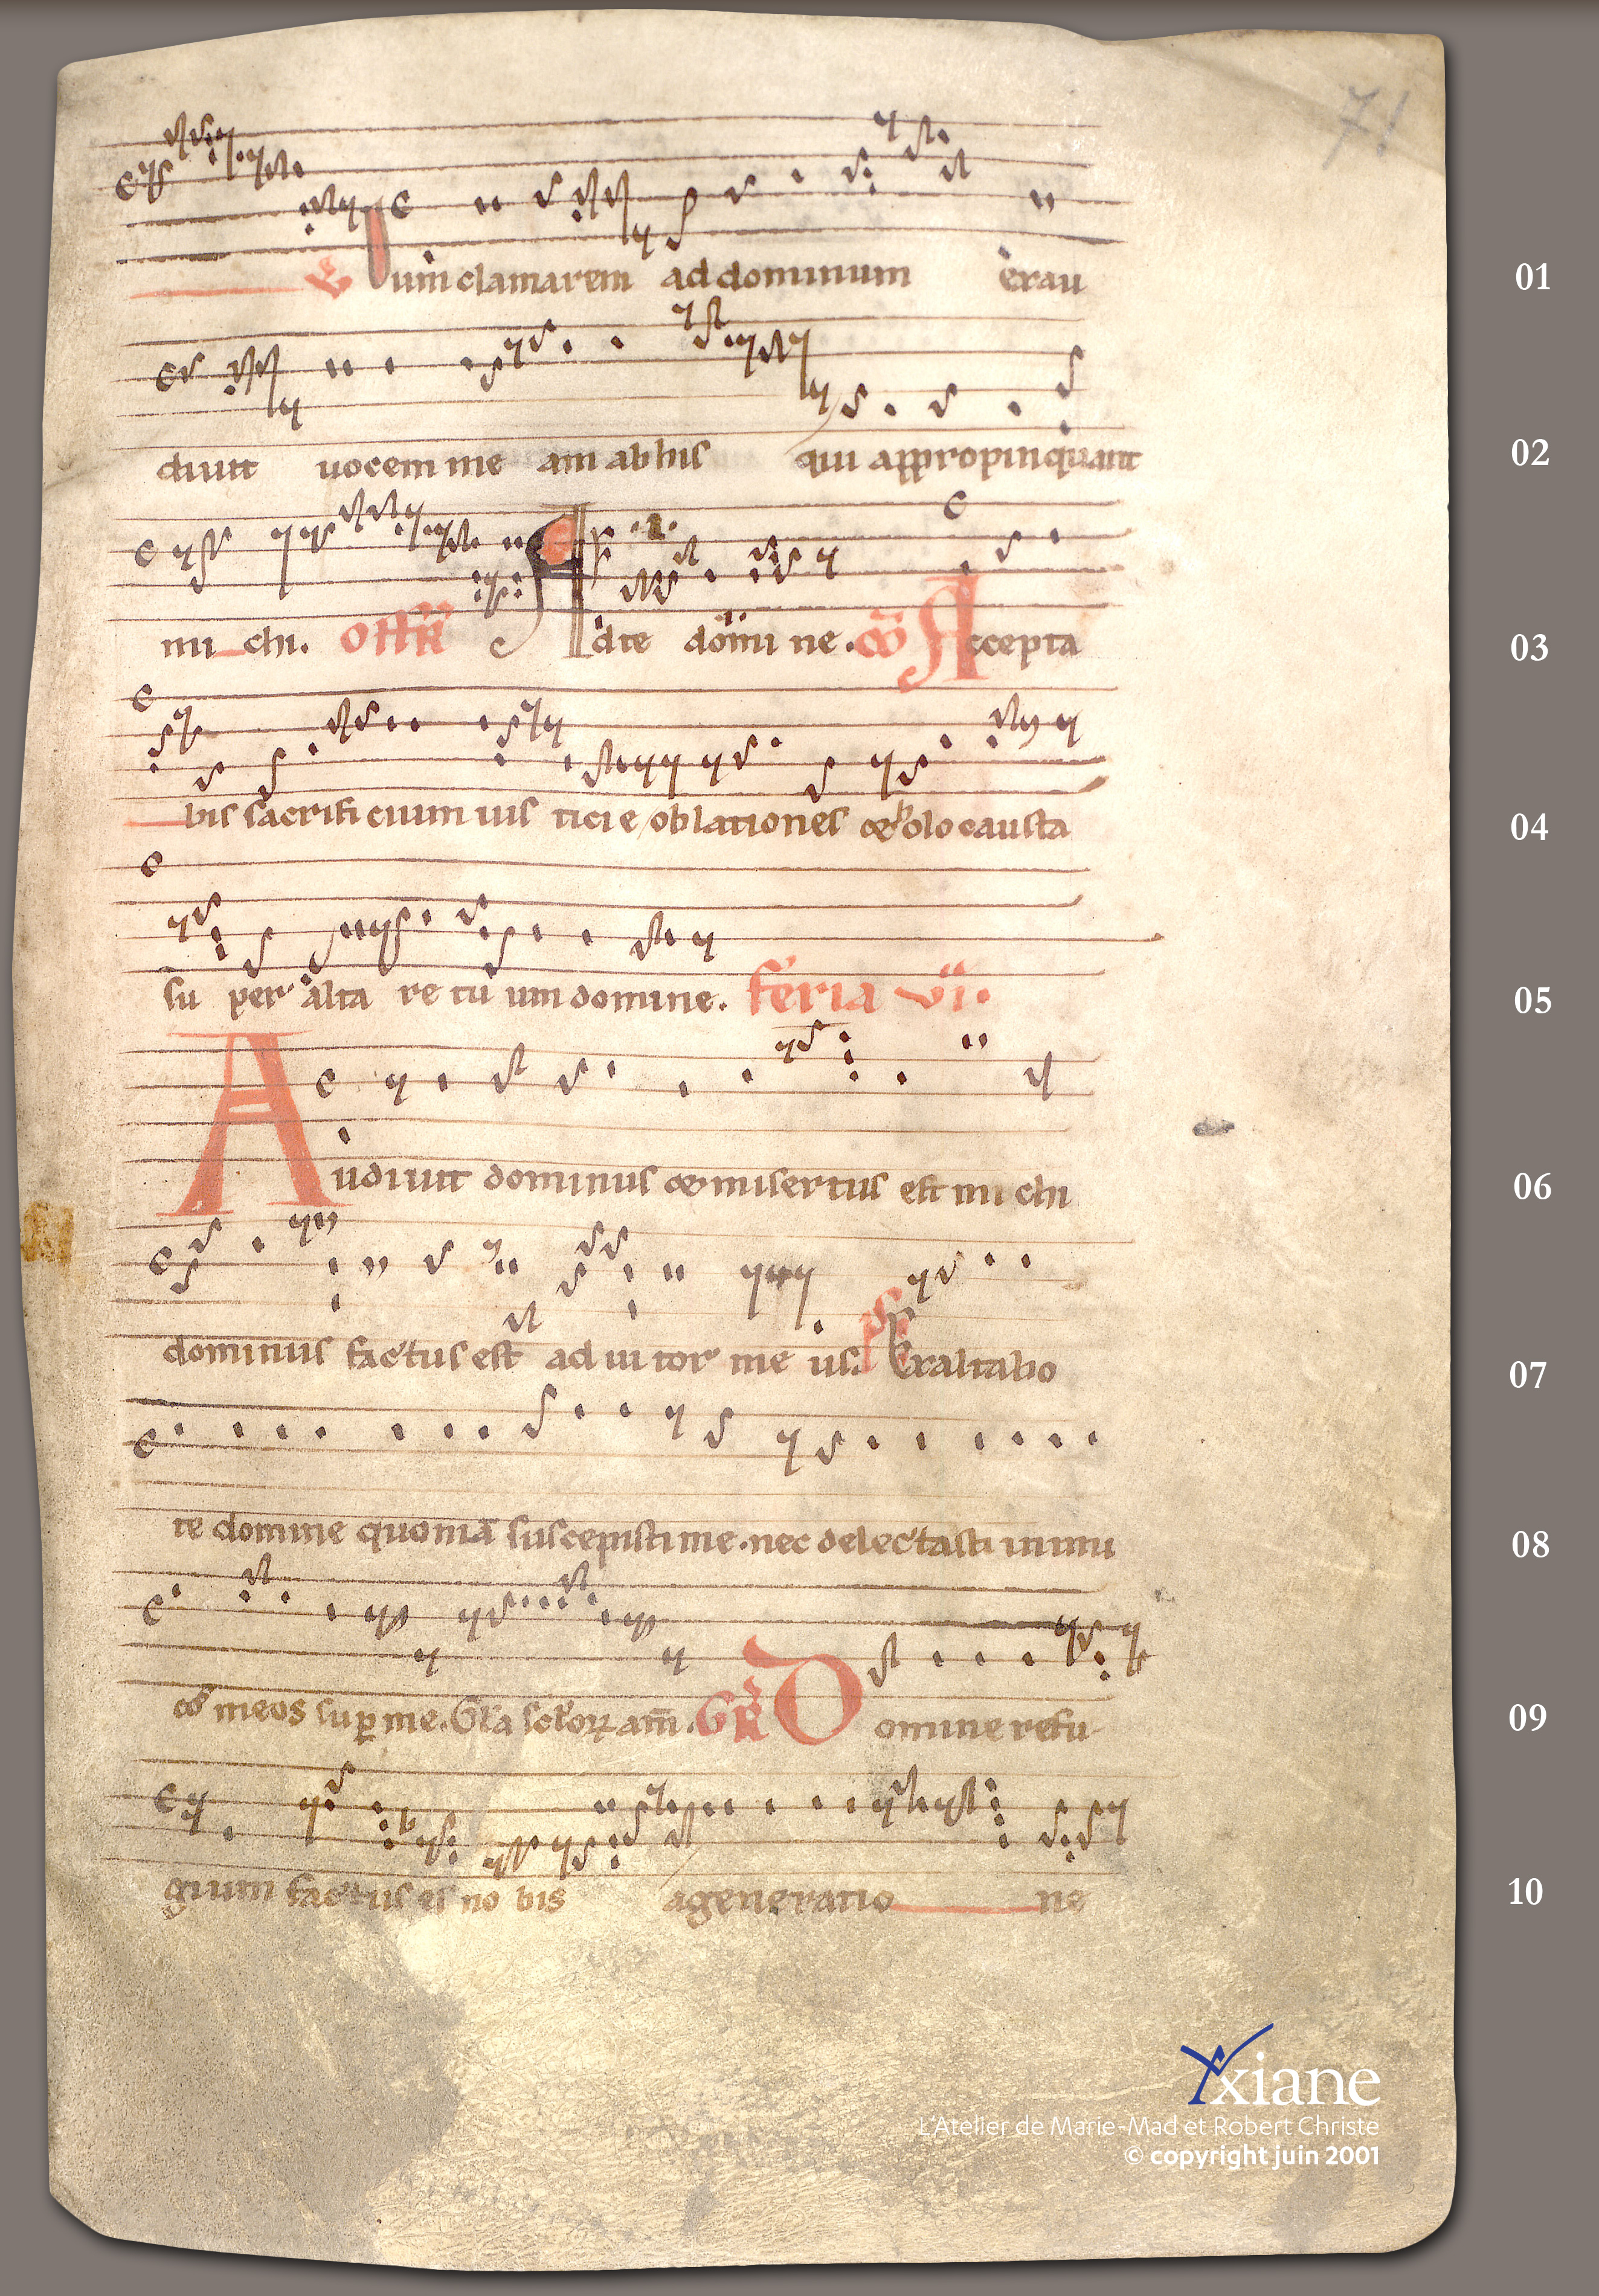 71
V Dum clamarem ad dominum exau 01
diuit uocem me am ab his qui appropinquant 02
mi chi. OFFR Ad te domi ne. CO Accepta 03
bis sacrifi cium ius ticie oblationes & holocausta 04
su per alta re tu um domine. feria vi. 05
Audiuit dominus & misertus est mi chi 06
dominus factus est ad iu tor me us. ps Exaltabo 07
te domine quoniā suscepisti me. nec delectasti inimi 08
cos meos suꝑ me. Gła scłoꝝ am̄. GR Domine refu 09
gium factus es no bis a generatio ne 10
Yxiane
L'Atelier de Marie-Mad et Robert Christe
© copyright juin 2001